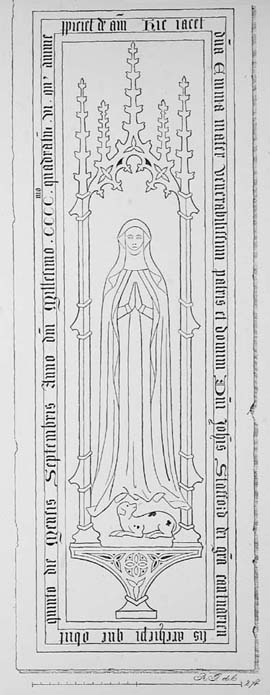 Hic iacet
dña Emma mater venerabilissimi patris et domini Dñi Johis Stafford dei gra cantuarien
sis archiepi que obiit
quinto die Mensis Septembris Anno dni Millesimo .CCCC.mo quadralmo vi. cui' anime
ppiciet' de' am